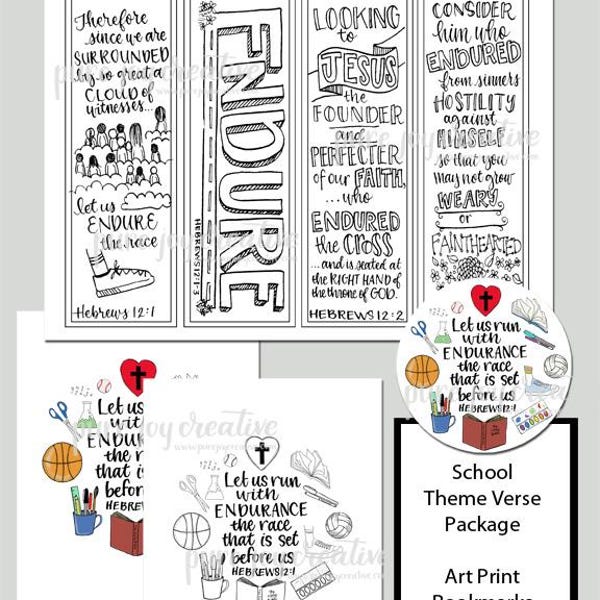 Therefore
since we are
SURROUNDED
by so great a
CLOUD of
witnesses...
let us
ENDURE
the race
Hebrews 12:1
ENDURE
HEBREWS 12:1-3
LOOKING
to
JESUS
the
FOUNDER
and
PERFECTER
of our FAITH,
...who
ENDURED
the CROSS
...and is seated at
the RIGHT HAND of
the throne of GOD.
HEBREWS 12:2
CONSIDER
him who
ENDURED
from sinners
HOSTILITY
against
HIMSELF
so that you
may not grow
WEARY
or
FAINTHEARTED
pure joy creative
Let us run
with
ENDURANCE
the race
that is set
before us
HEBREWS 12:1
Let us
with
ENDU
the r
that i
before
HEBREW
pure joy creative
Let us run
with
ENDURANCE
the race
that is set
before us
HEBREWS 12:1
pure joy creative
School
Theme Verse
Package
Art Print
Bookmarks